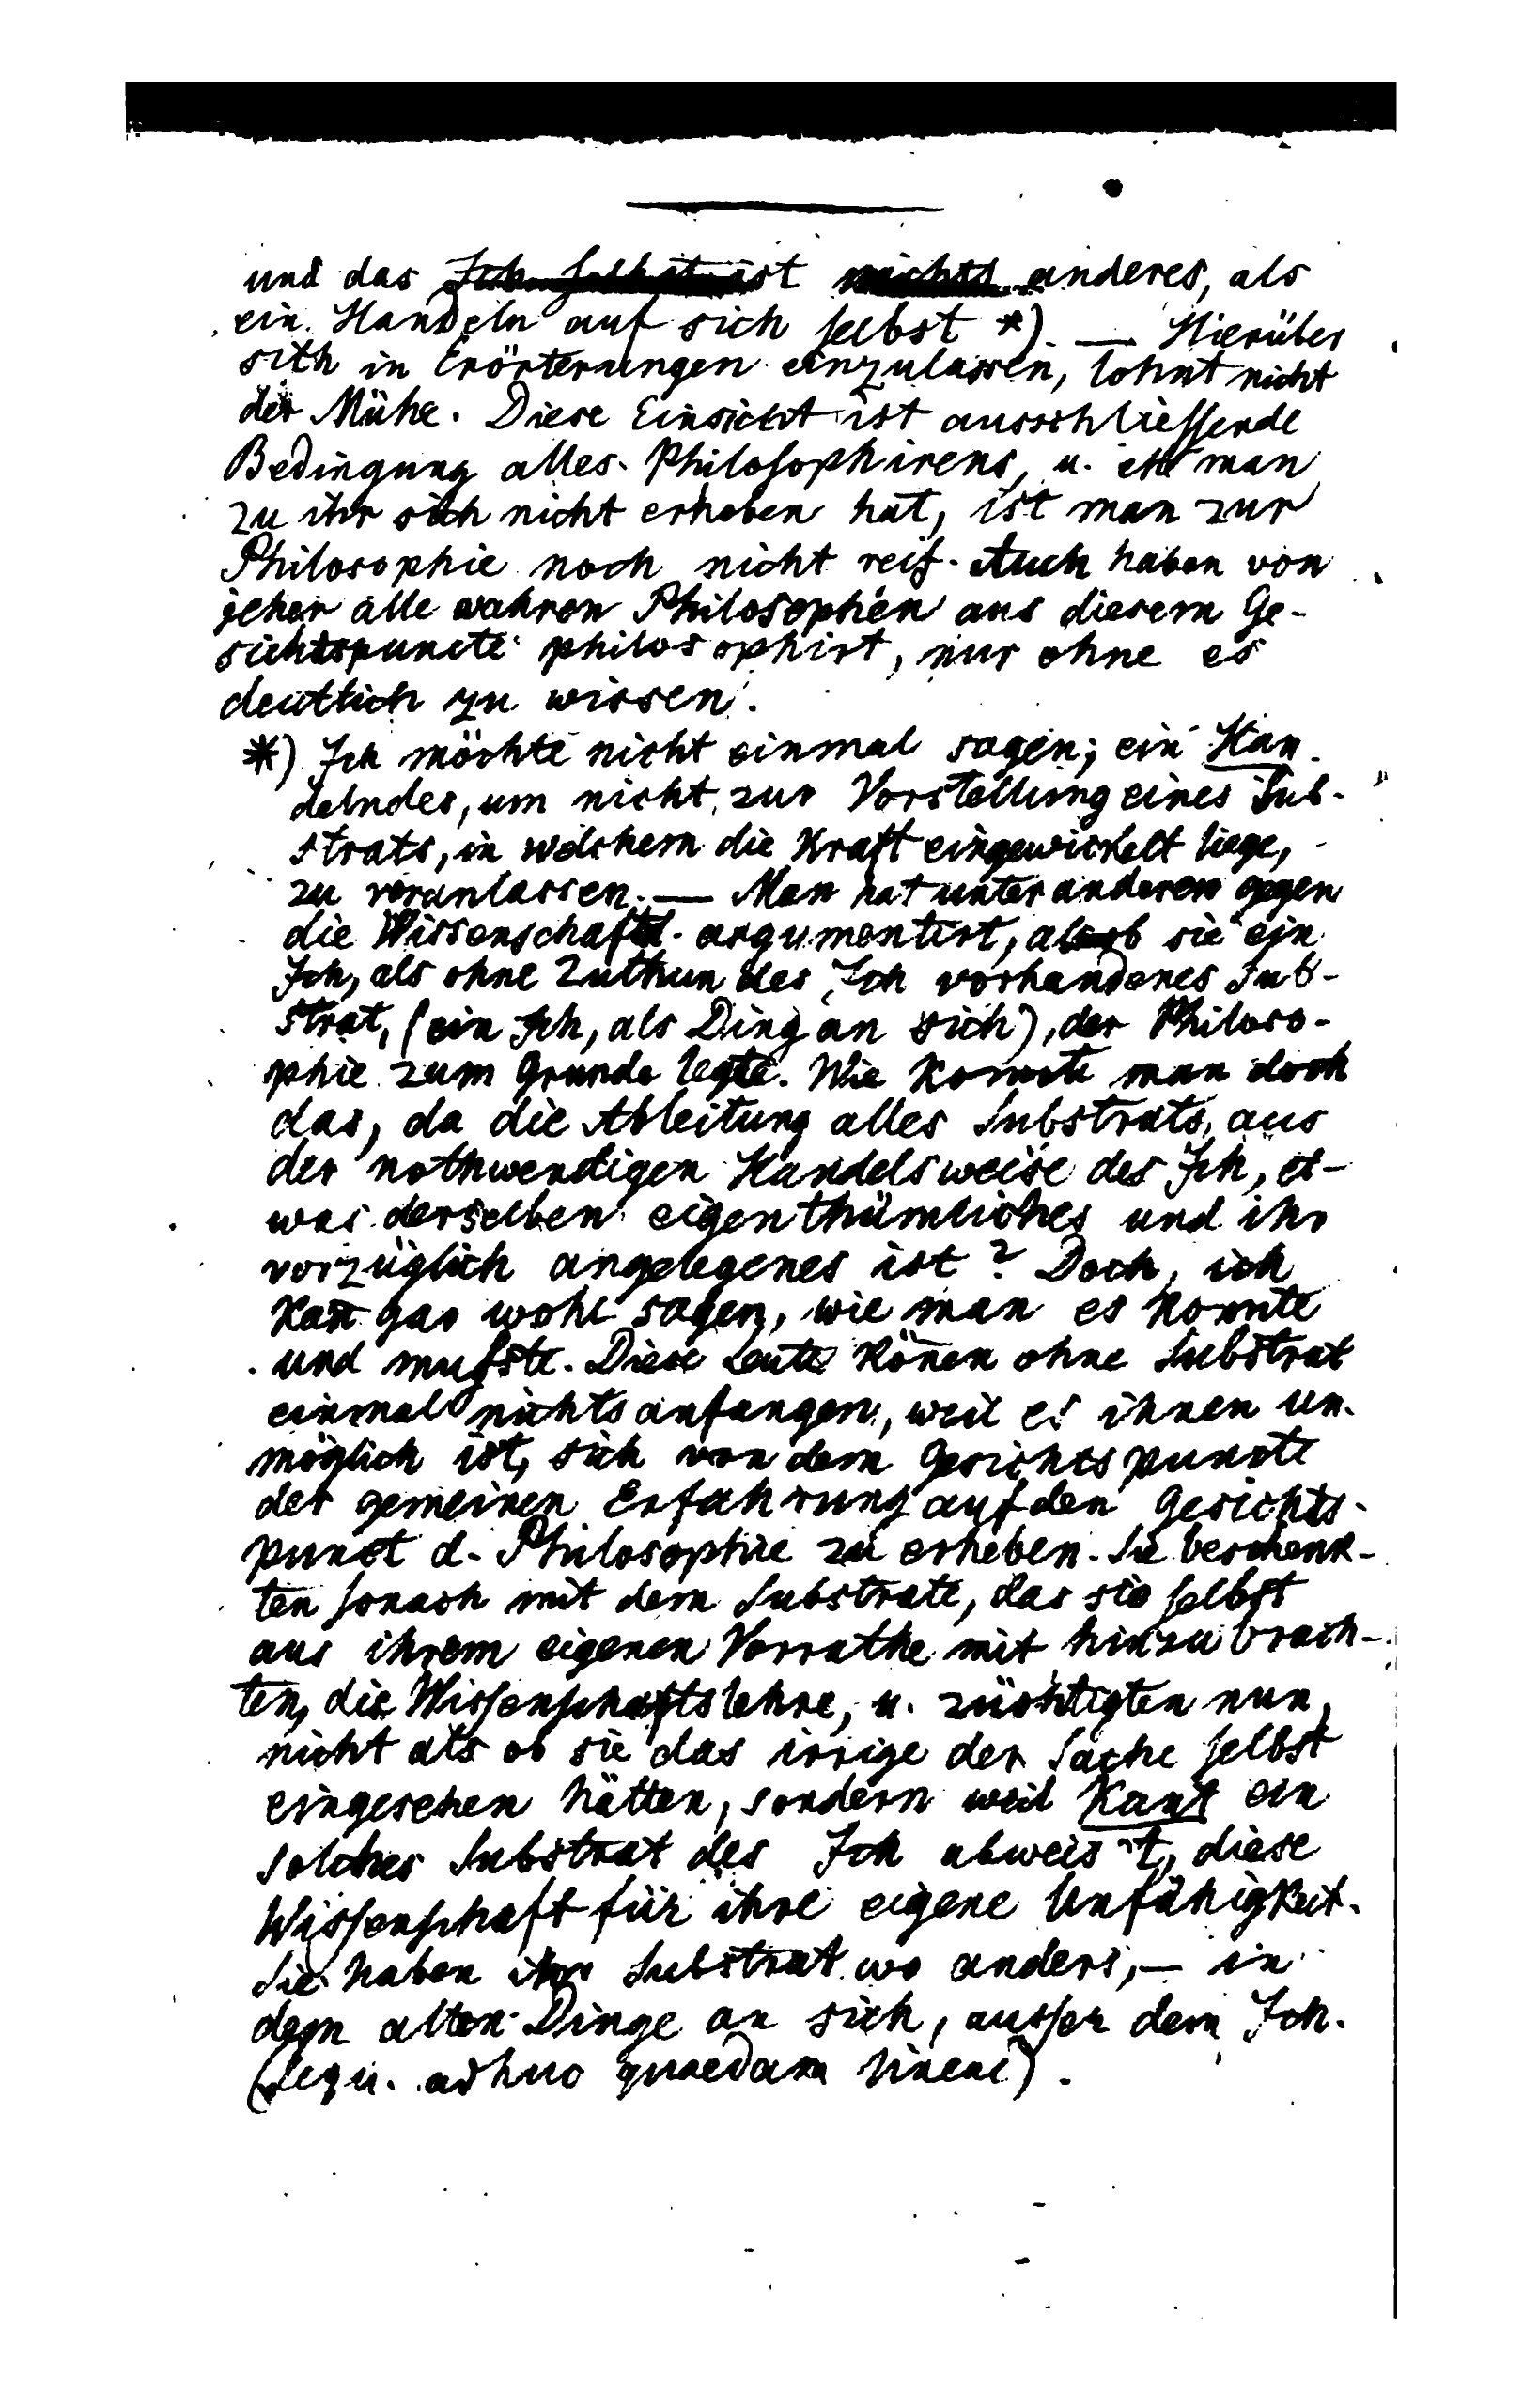 und das Ich selbst ist nichts anderes, als
ein Handeln auf sich selbst *). — Hierüber
sich in Erörterungen einzulassen, lohnt nicht
der Mühe. Diese Einsicht ist ausschliessende
Bedingung alles Philosophirens, u. ehe man
zu ihr sich nicht erhoben hat, ist man zur
Philosophie noch nicht reif. Auch haben von
jeher alle wahren Philosophen aus diesem Ge-
sichtspuncte philosophirt, nur ohne es
deutlich zu wissen.
*) Ich möchte nicht einmal sagen; ein Han-
delndes, um nicht zur Vorstellung eines Sub-
strats, in welchem die Kraft eingewickelt liege,
zu veranlassen. — Man hat unter anderem gegen
die Wissenschaftsl. argumentirt, als ob sie ein
Ich, als ohne Zuthun des Ich vorhandenes Sub-
strat, (ein Ich, als Ding an sich), der Philoso-
phie zum Grunde legte. Wie konnte man doch
das, da die Ableitung alles Substrats, aus
der nothwendigen Handelsweise des Ich, et-
was derselben eigenthümliches und ihr
vorzüglich angelegenes ist? Doch, ich
kan̄ gar wohl sagen, wie man es konnte
und mußte. Diese Leute kön̄en ohne Substrat
einmal nichts anfangen, weil es ihnen un-
möglich ist, sich von dem Gesichtspuncte
der gemeinen Erfahrung auf den Gesichts-
punct d. Philosophie zu erheben. Sie beschenk-
ten sonach mit dem Substrate, das sie selbst
aus ihrem eigenen Vorrathe mit hinzu brach-
ten, die Wissenschaftslehre, u. züchtigten nun,
nicht als ob sie das irrige der Sache selbst
eingesehen hätten, sondern weil Kant ein
solches Substrat des Ich abweis't, diese
Wissenschaft für ihre eigene Unfähigkeit.
Sie haben ihr Substrat wo anders, — in
dem alten Dinge an sich, ausser dem Ich.
(Sequ. adhuc quaedam lineae).